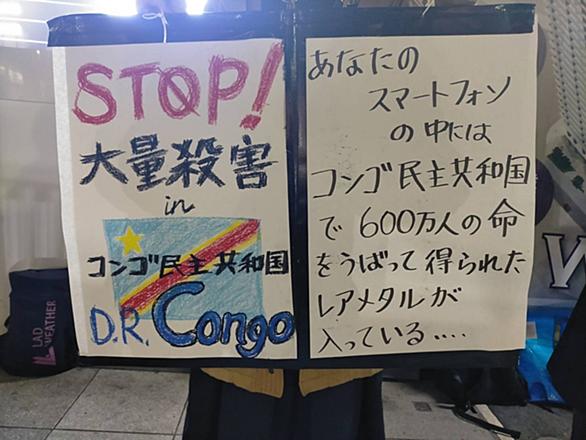 STOP!
大量殺害
in
コンゴ民主共和国
D.R. Congo
あなたの
スマートフォン
の中には
コンゴ民主共和国
で600万人の命
をうばって得られた
レアメタルが
入っている.....
LAD
WEATHER